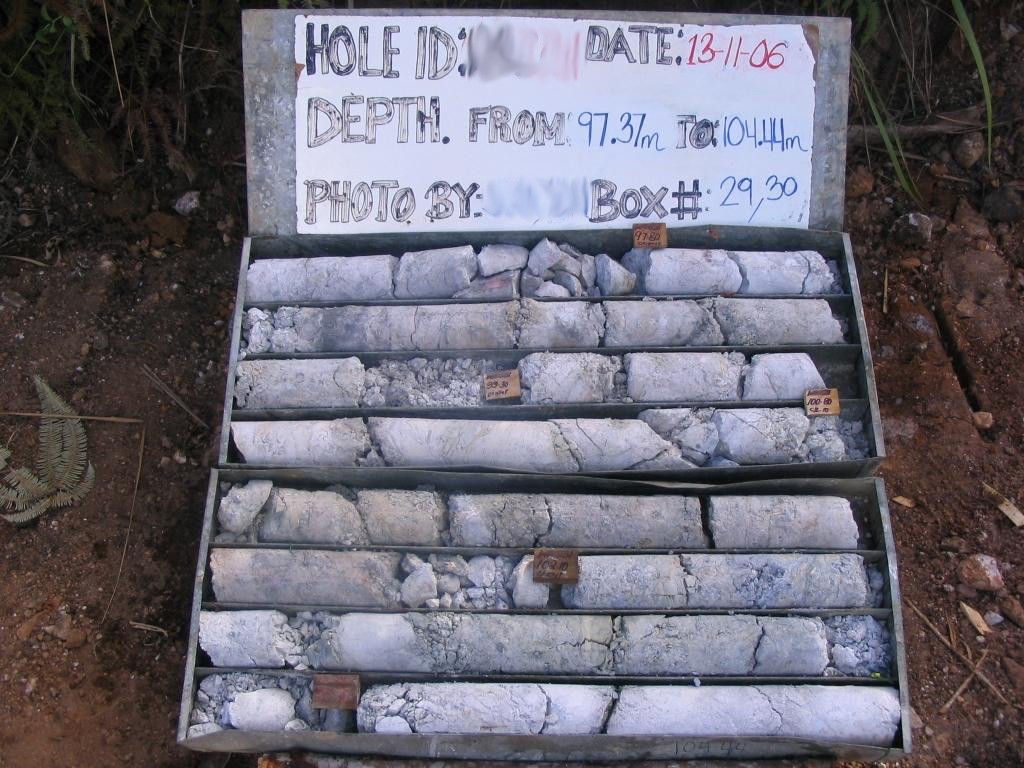 HOLE ID: DATE: 13-11-06
DEPTH. FROM: 97.37m TO: 104.44m
PHOTO BY: BOX #: 29,30
97.80
99.30
100-80
102.10
104.44